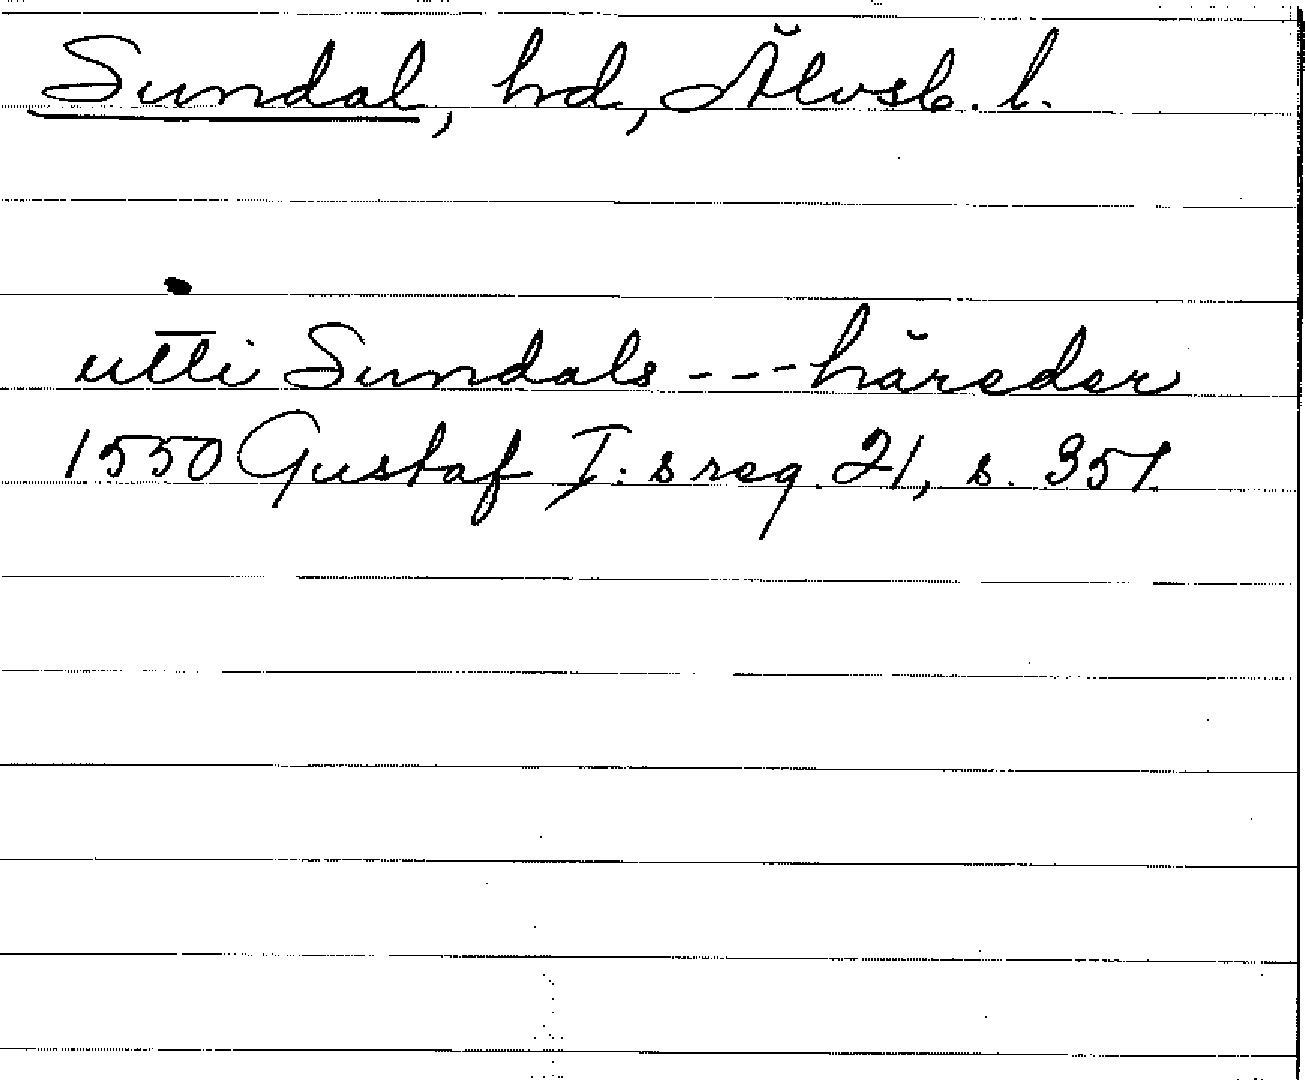 Sundal, hd, Älvsb. l.
utti Sundals - - - häreder
1550 Gustaf I: s reg. 21, s. 351.